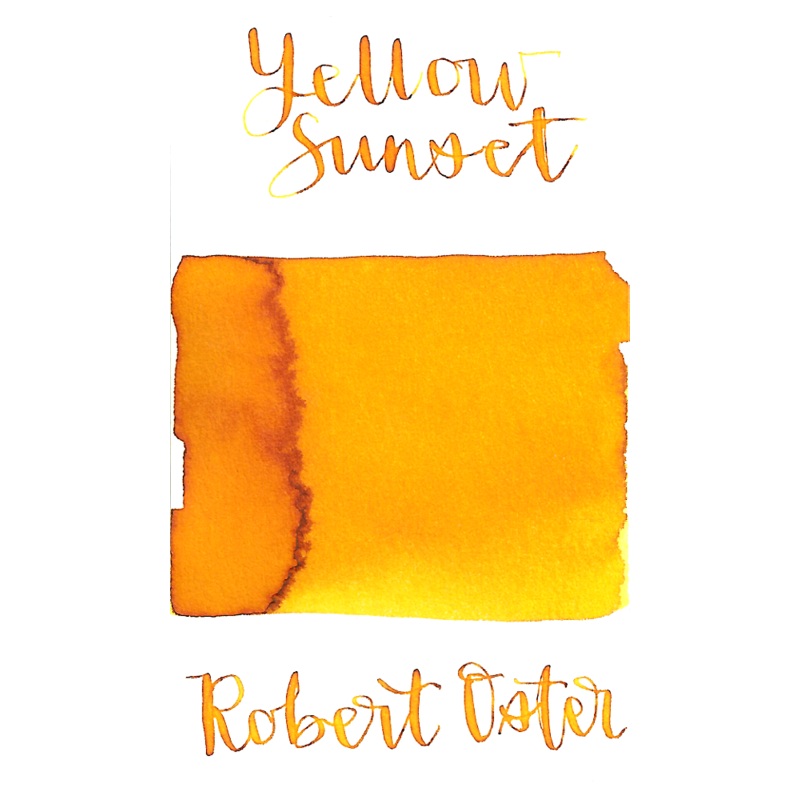 Yellow
Sunset
Robert Oster